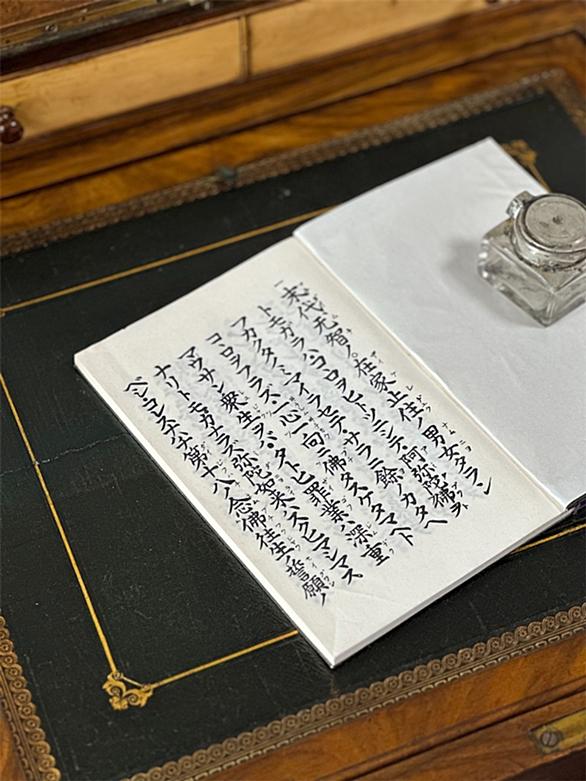 一末代无智ノ在家止住ノ男女タラン
トモカラハコヽロヲヒトツニシテ阿弥陀佛ヲ
フカクタノミマイラセテサラニ餘ノカタヘ
コヽロヲフラズ一心一向ニ佛タスケタマヘト
マウサン衆生ヲバタトヒ罪業ハ深重
ナリトモカナラズ弥陀如来ハスクヒマシマス
ベシコレスナハチ第十八ノ念佛往生ノ誓願ノ